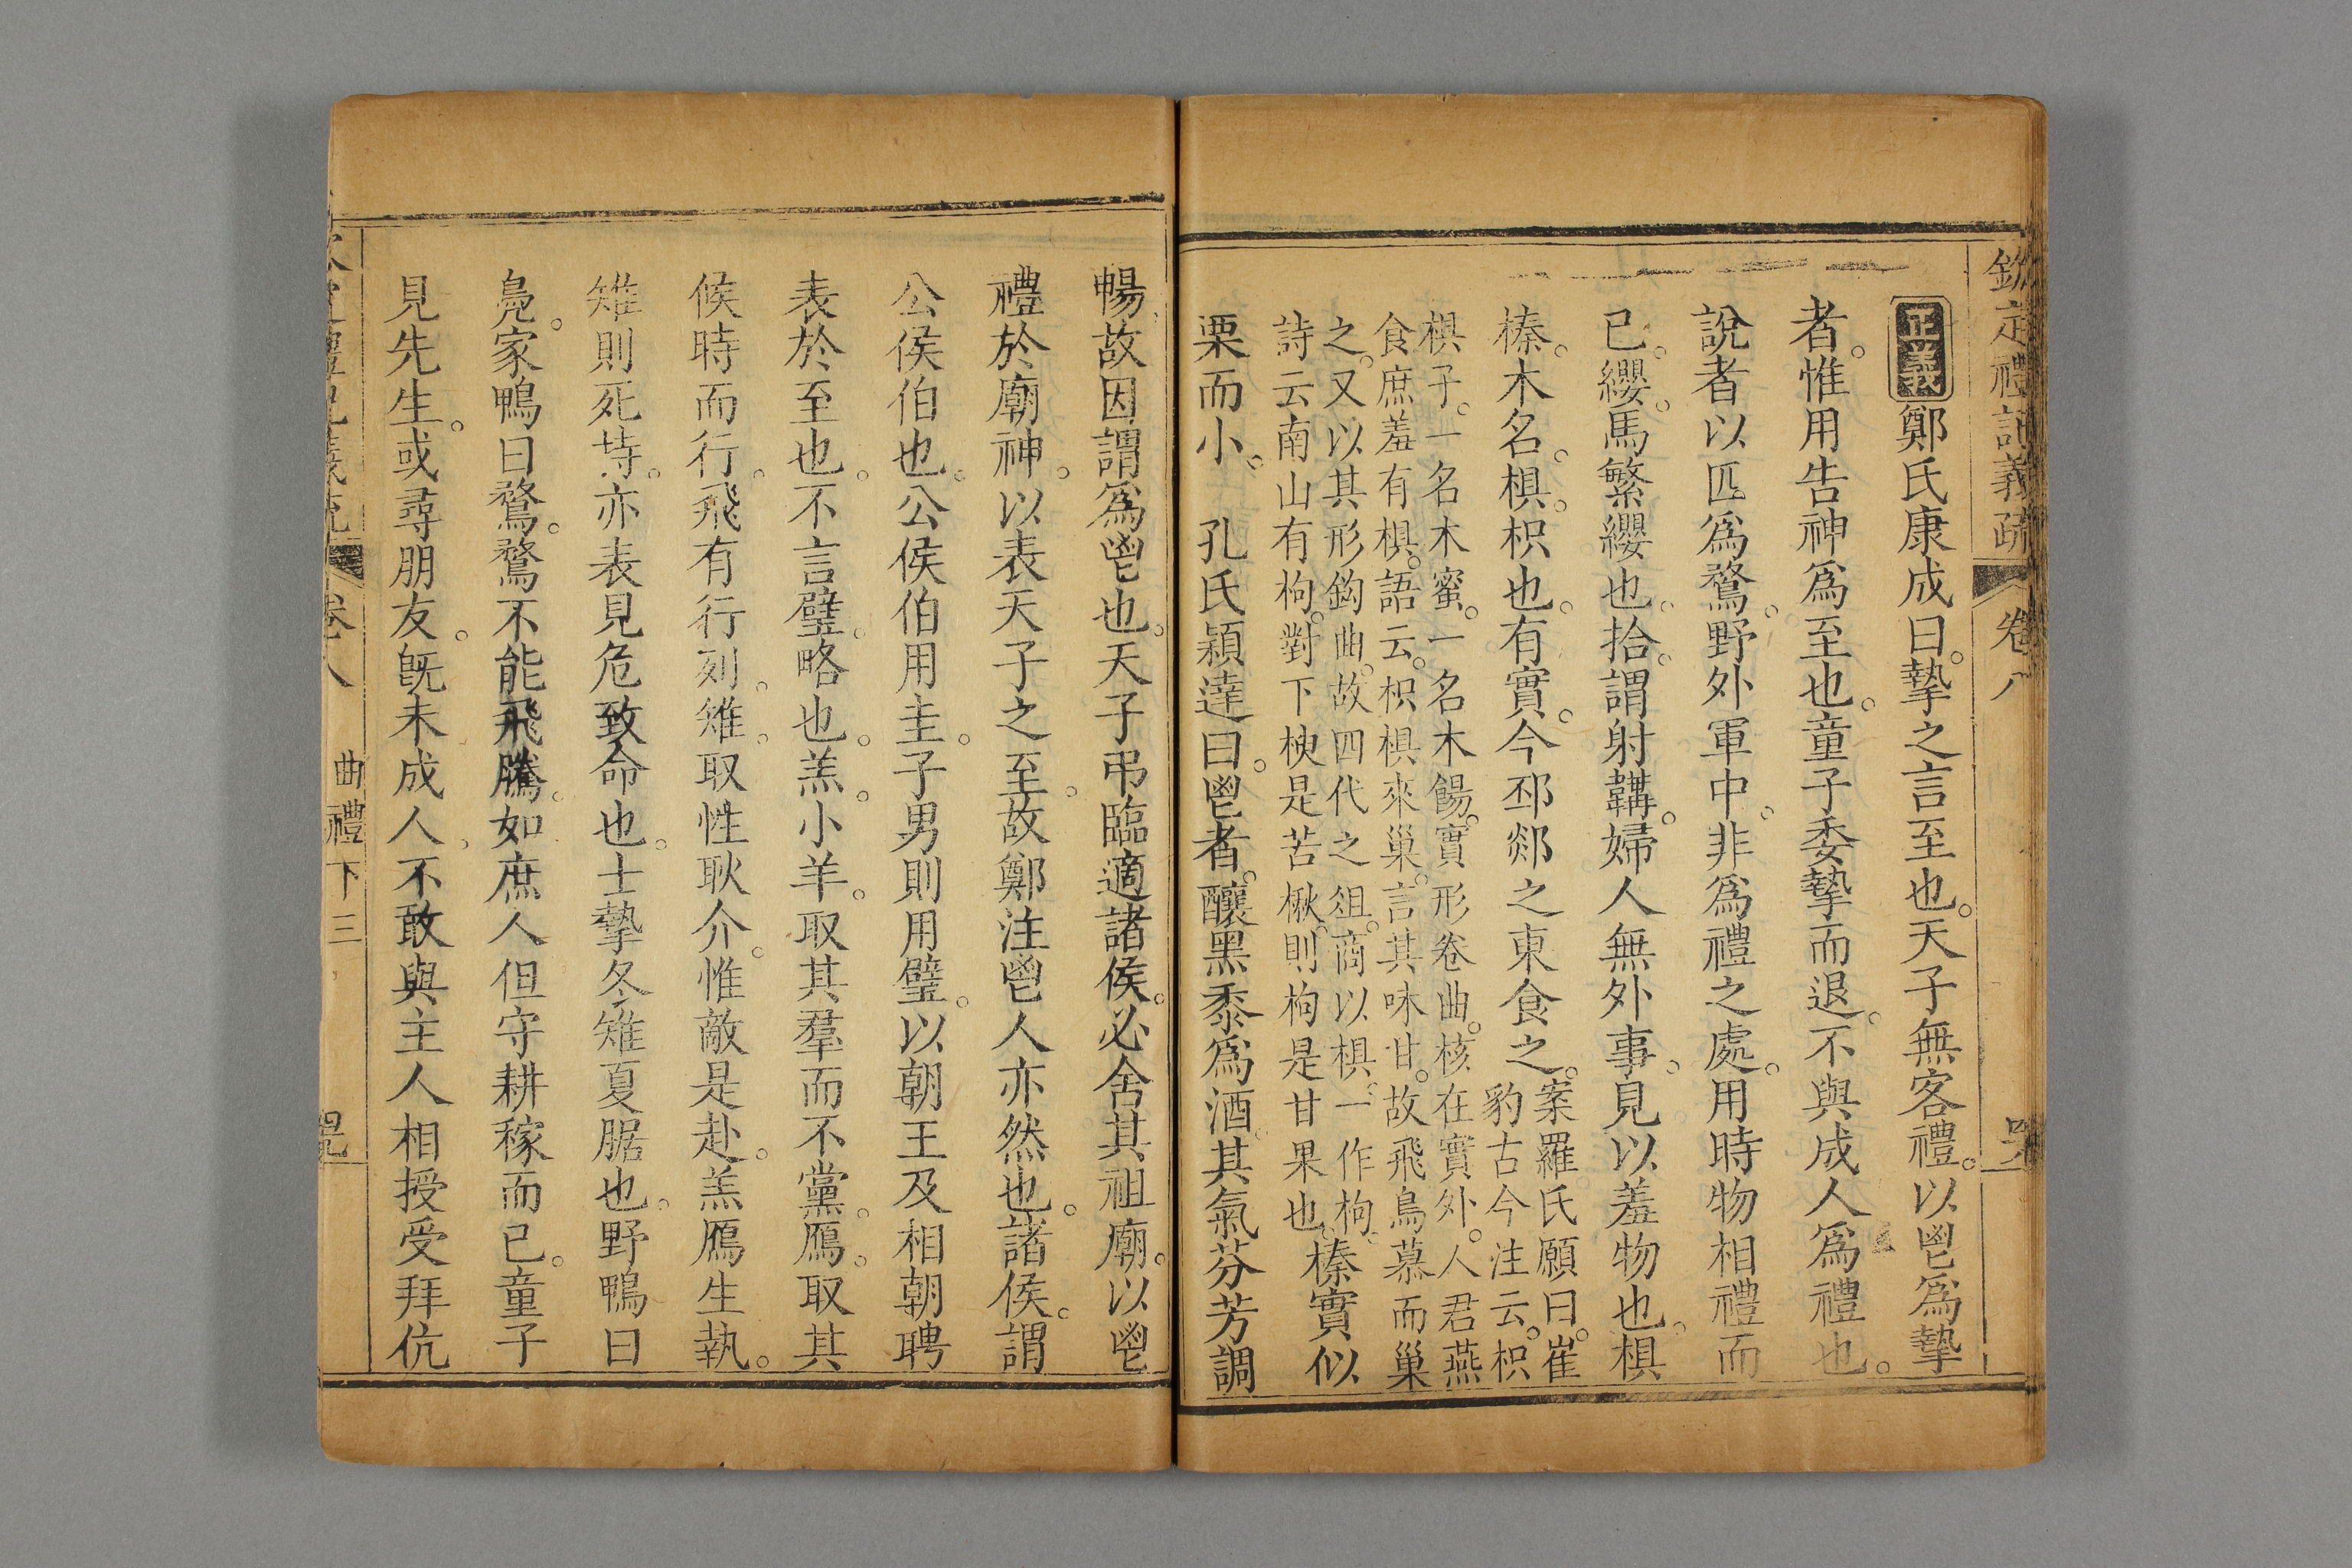 欽定禮記義疏 卷八
正義鄭氏康成曰。摯之言至也。天子無客禮。以鬯爲摯
者。惟用告神爲至也。童子委摯而退。不與成人爲禮也。
說者以匹爲鶩。野外軍中。非爲禮之處。用時物相禮而
已。纓。馬繁纓也。拾。謂射韝。婦人無外事。見以羞物也。椇
榛。木名。椇。枳也。有實。今邳郯之東食之。
案羅氏願曰。崔
豹古今注云。枳
椇子。一名木蜜。一名木餳。實形卷曲。核在實外。人君燕
食庶羞有椇。語云。枳椇來巢。言其味甘。故飛鳥慕而巢
之。又以其形鈎曲。故四代之俎。商以椇。一作枸。
詩云南山有枸。對下楰是苦楸。則枸是甘果也。
榛實似
栗而小。 孔氏穎達曰。鬯者。釀黑黍爲酒。其氣芬芳調
暢。故因謂爲鬯也。天子弔臨適諸侯。必舍其祖廟。以鬯
禮於廟神。以表天子之至。故鄭注鬯人亦然也。諸侯。謂
公侯伯也。公侯伯用圭。子男則用璧。以朝王及相朝聘
表於至也。不言璧。略也。羔。小羊。取其羣而不黨。鴈。取其
候時而行。飛有行列。雉。取性耿介。惟敵是赴。羔鴈生執。
雉則死持。亦表見危致命也。士摯冬雉夏腒也。野鴨曰
鳧。家鴨曰鶩。鶩不能飛騰。如庶人但守耕稼而已。童子
見先生。或尋朋友。旣未成人。不敢與主人相授受拜伉
卷八 曲禮下三